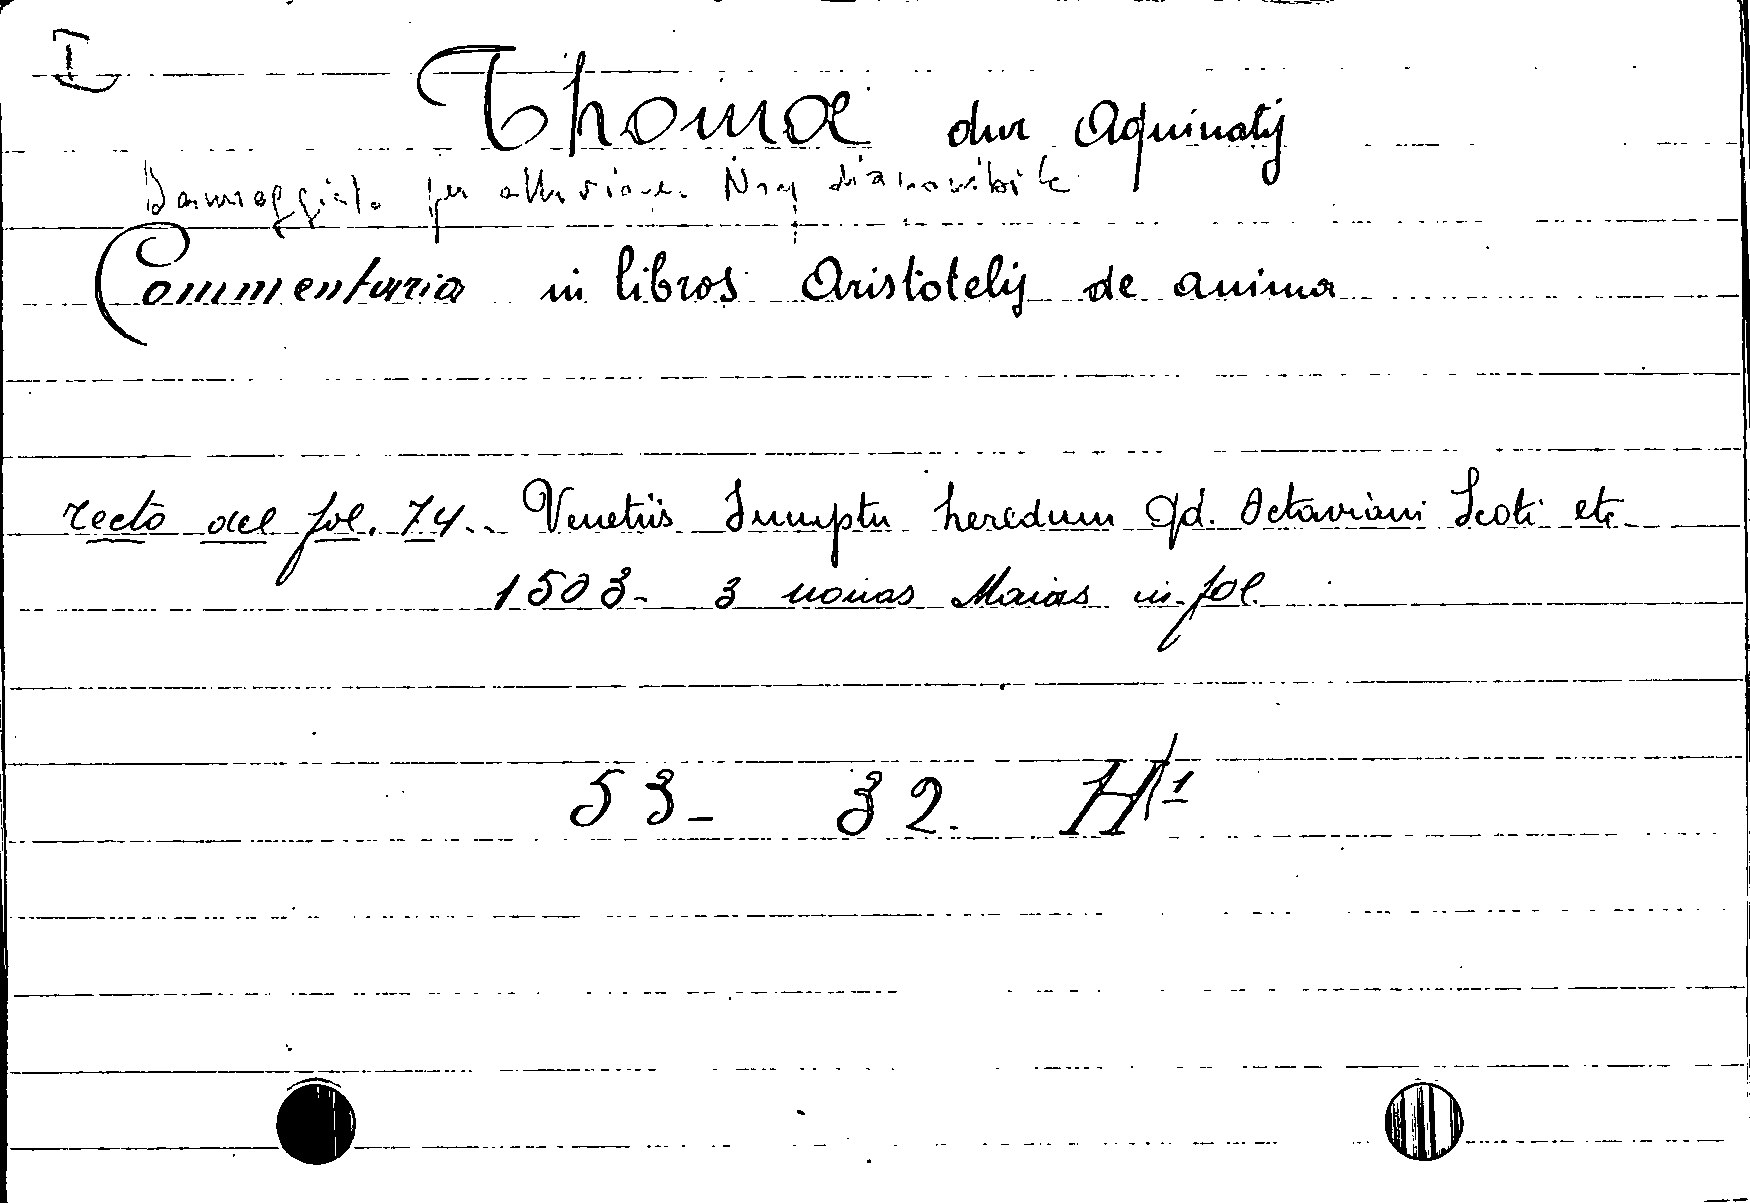 I
Thomae div Aquinatis
Danneggiato per alluvione. Non disponibile
Commentaria in libros Aristotelis de anima
recto del fol. 74.. Venetiis Sumptu heredum Qd. Octaviani Scoti etc
1503- 3 nonas Maias in fol.
53- 32. H 1